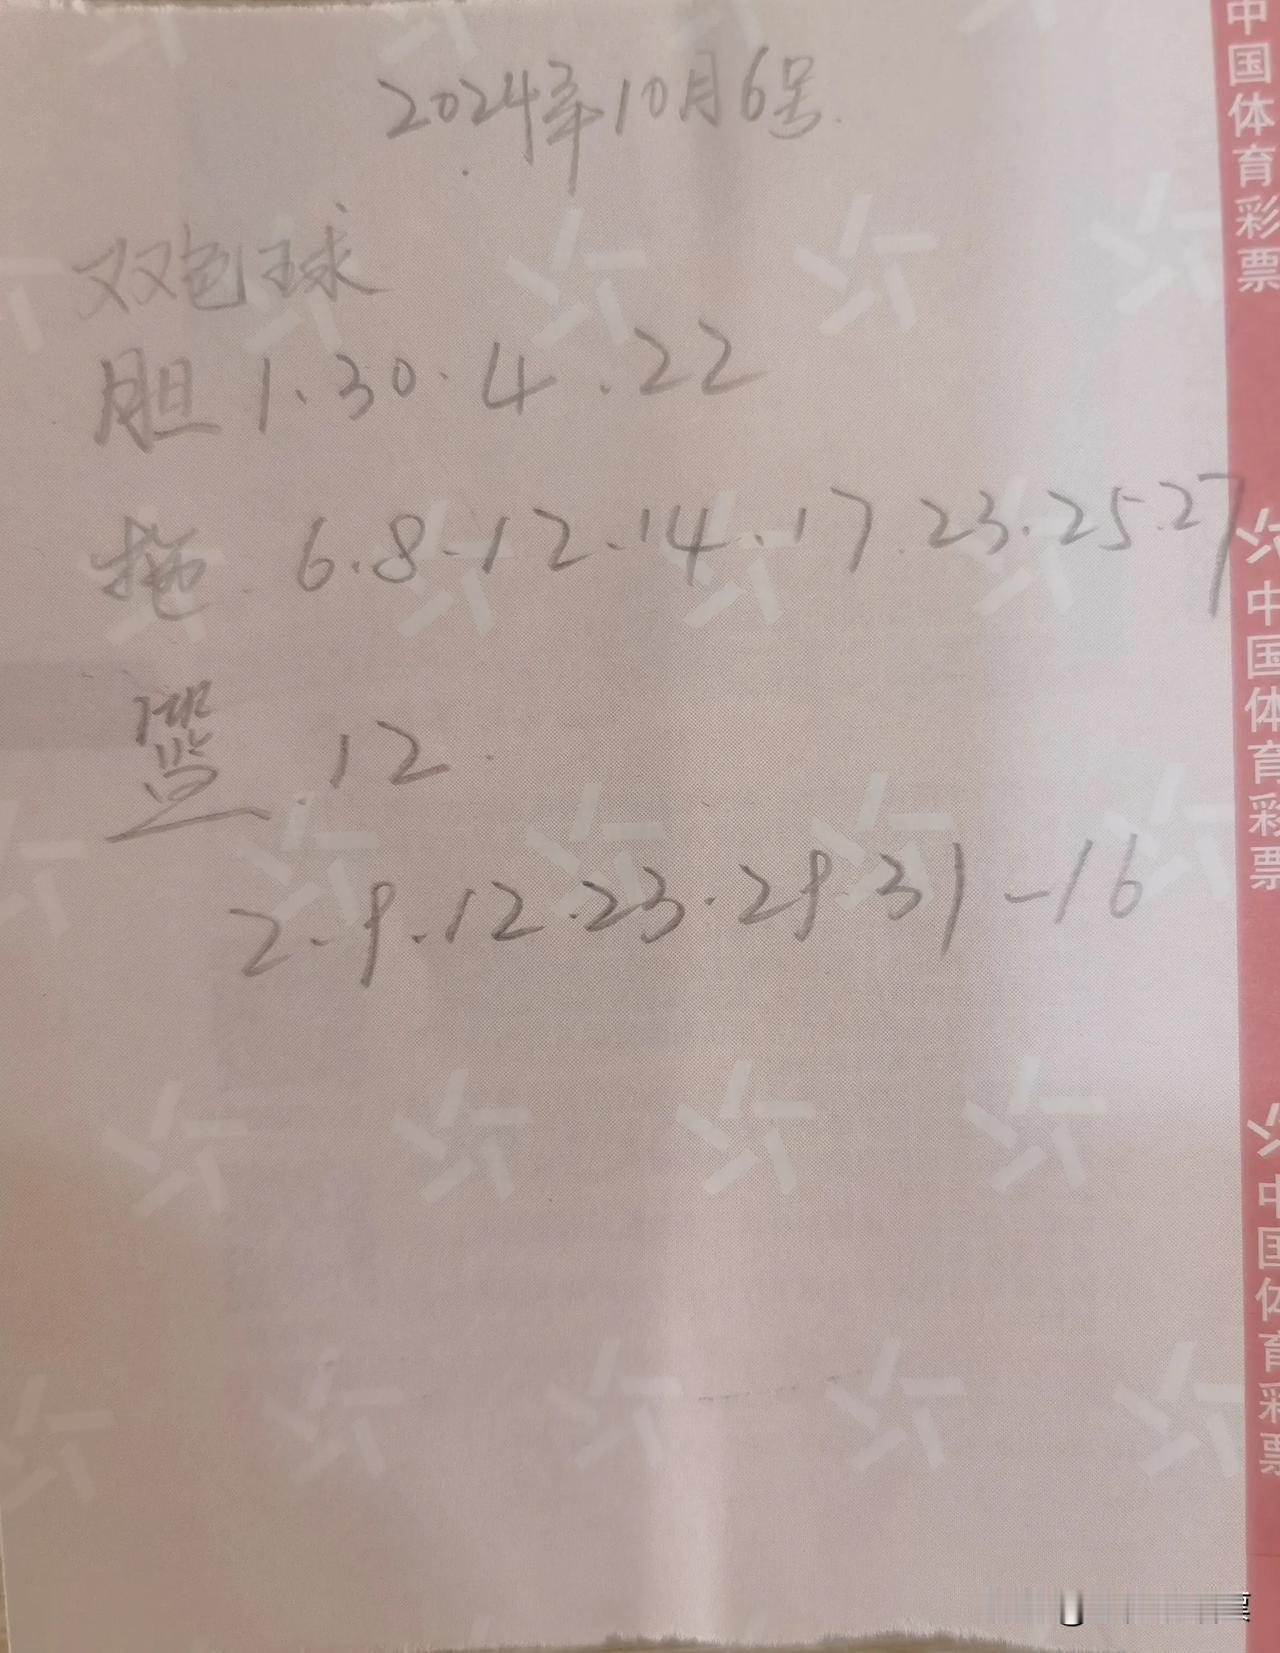 2024年10月6号.
双色球
胆 1.30.4.22
拖 6.8.12.14.17.23.25.27
蓝 12.
2.9.12.23.29.31-16
中国体育彩票
中国体育彩票
中国体育彩票